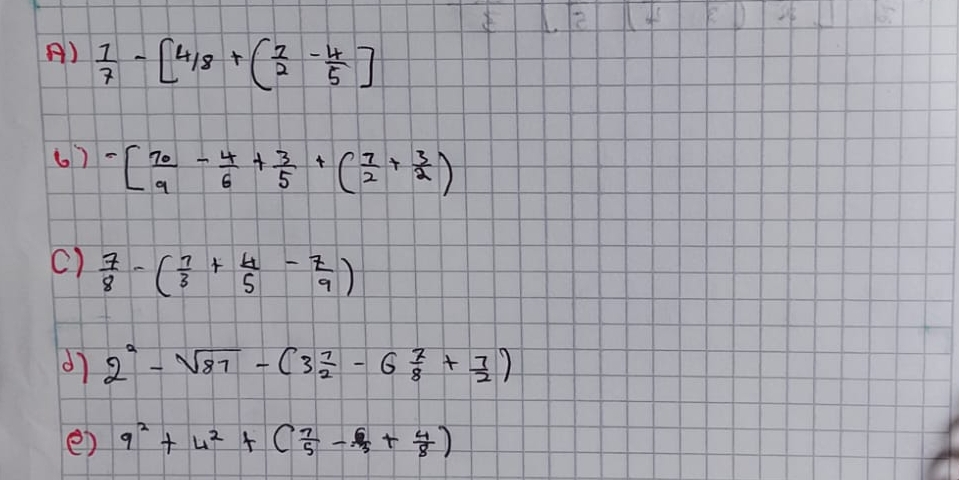 A) 1/7 - [4/8 + (1/2 - 4/5]
b) - [10/9 - 4/6 + 3/5 + (1/2 + 3/2)
C) 7/8 - (1/3 + 4/5 - 7/9)
d) 2² - √81 - (3 1/2 - 6 7/8 + 1/2)
e) 9² + 4² + (7/5 - + 4/8)